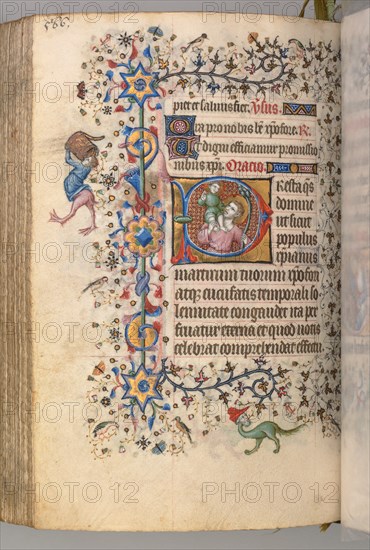 586
piet et saluus fiet. Vsus.
Ora pro nobis bte xpofore. R.
Et digni efficiamur promissio
nibus xpi. Oratio.
Presta qs
domine
ut sicut
populus
xpianus
martirum tuorum xpofori
atq; cucufatis temporali so
lennitate congaudet ita per
fruatur eterna et quod uotis
celebrat comprehendat effectu.
PHOTO 12